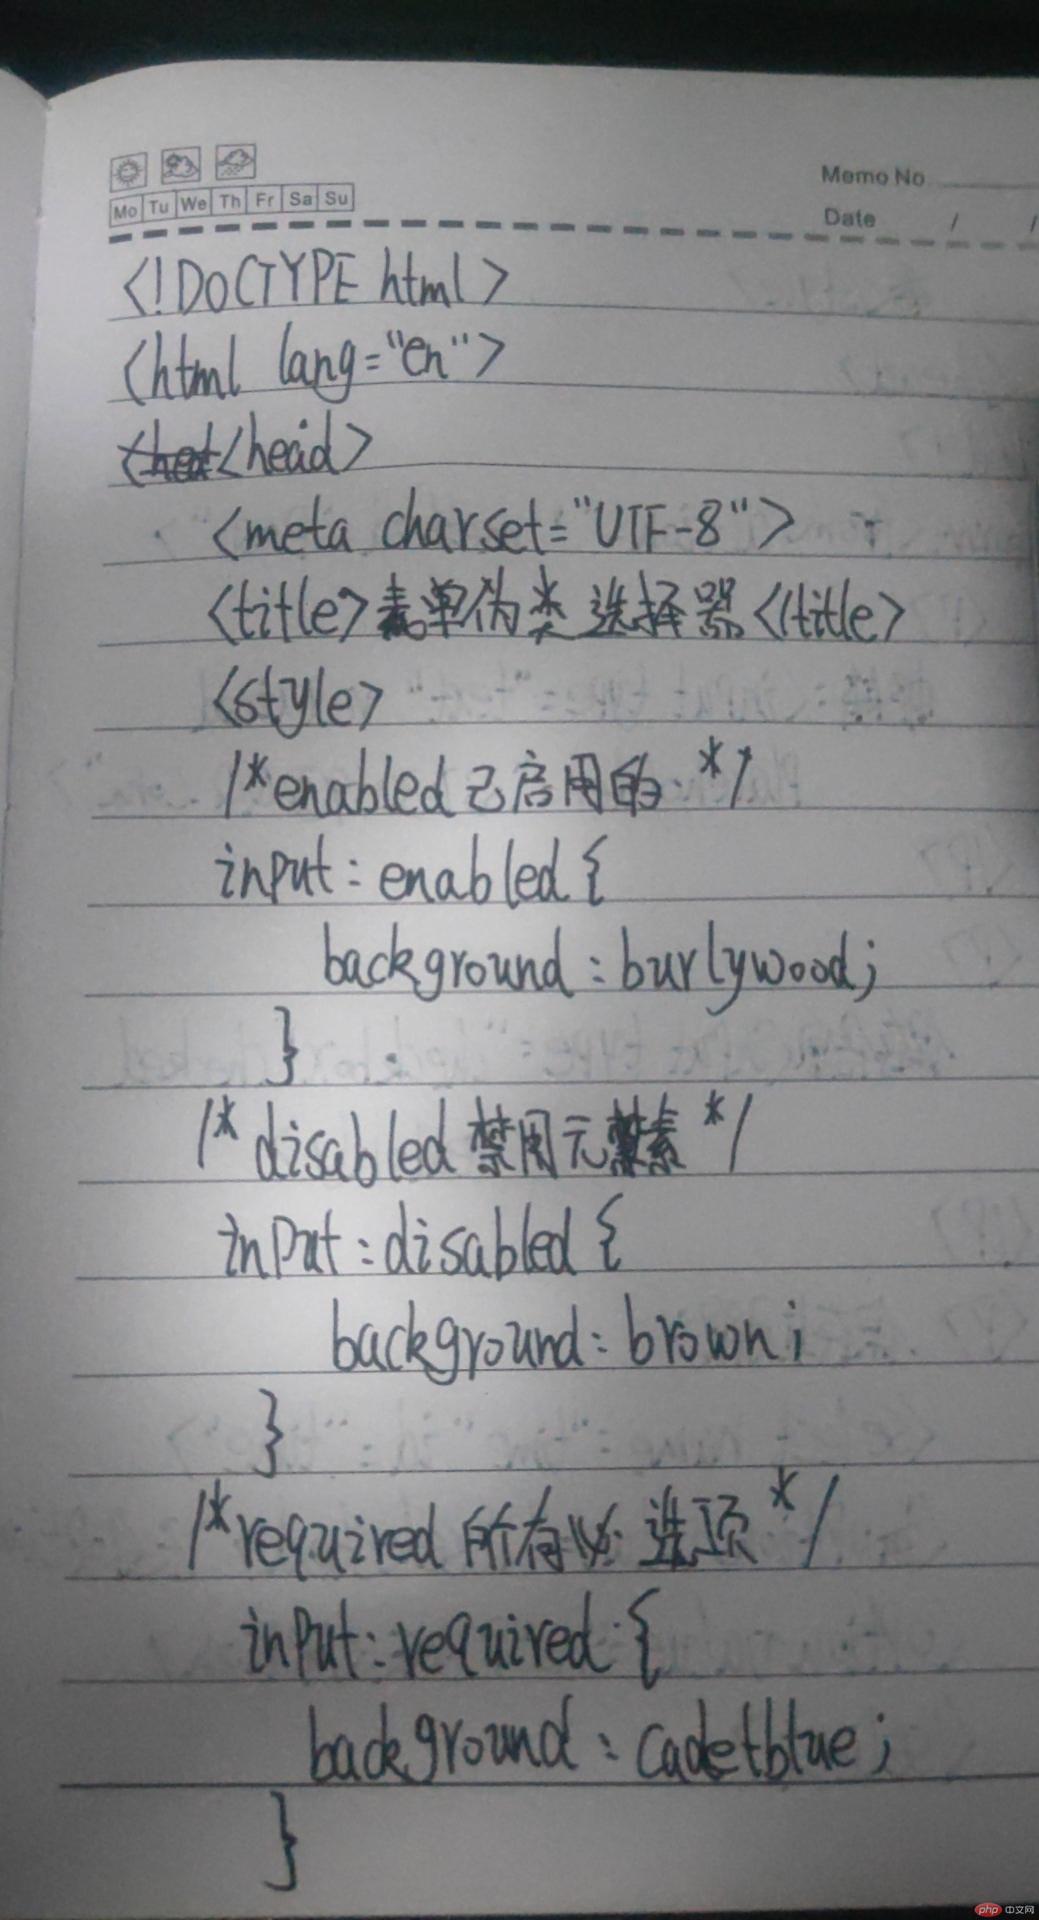 Memo No.
Mo Tu We Th Fr Sa Su
Date / /
<!DOCTYPE html>
<html lang="en">
<head>
<meta charset="UTF-8">
<title>表单伪类选择器</title>
<style>
/*enabled已启用的 */
input:enabled{
background:burlywood;
}
/* disabled 禁用元素 */
input:disabled{
background:brown;
}
/*required 所有必选项 */
input:required{
background:cadetblue;
}
php 中文网